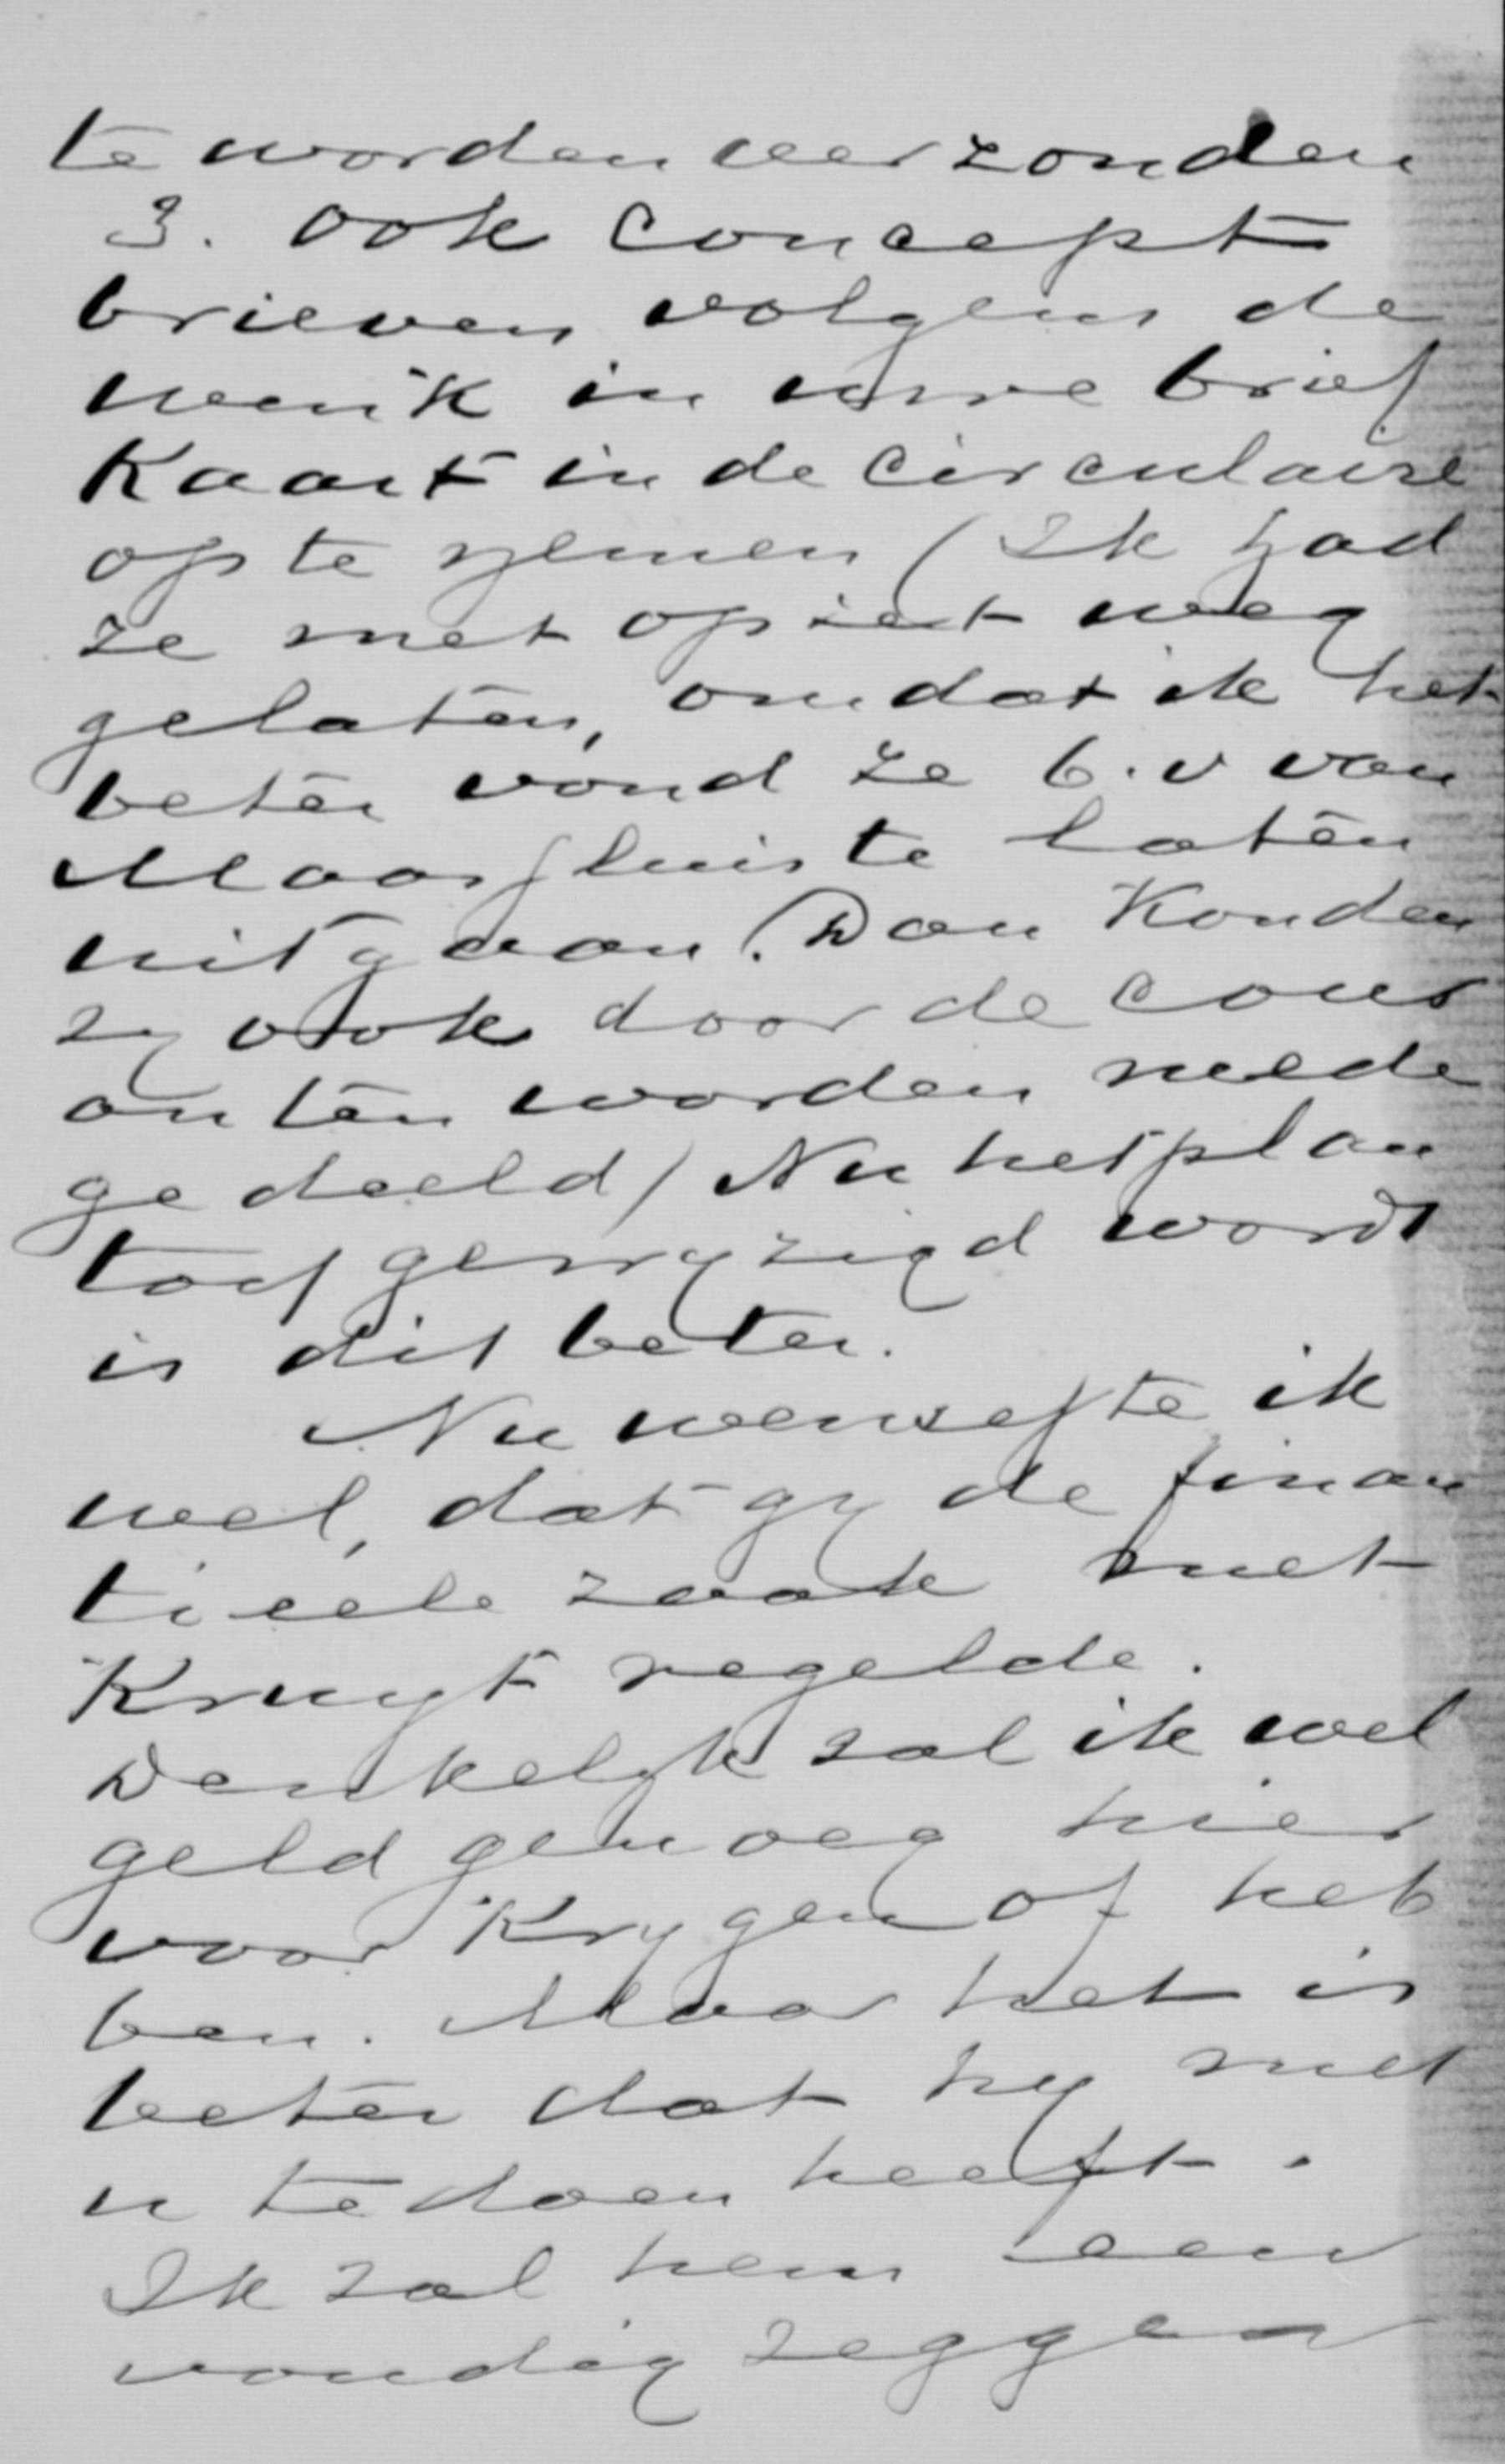 te worden verzonden
3. ook concept
brieven volgens de
wenk in uwe brief
kaart in de circulaire
op te nemen (Ik had
ze met opzet weg
gelaten, omdat ik het
beter vond ze b.v van
Maassluis te laten
uitgaan. Dan konden
zy ook door de cour
anten worden mede
gedeeld) Nu het plan
toch gewyzigd wordt
is dit beter.
Nu wenschte ik
wel, dat gy de finan
tieele zaak met
Kruyt regelde.
Denkelyk zal ik wel
geld genoeg hier
voor krygen of heb
ben. Maar het is
beter dat hy met
u te doen heeft.
Ik zal hem een
voudig zeggen